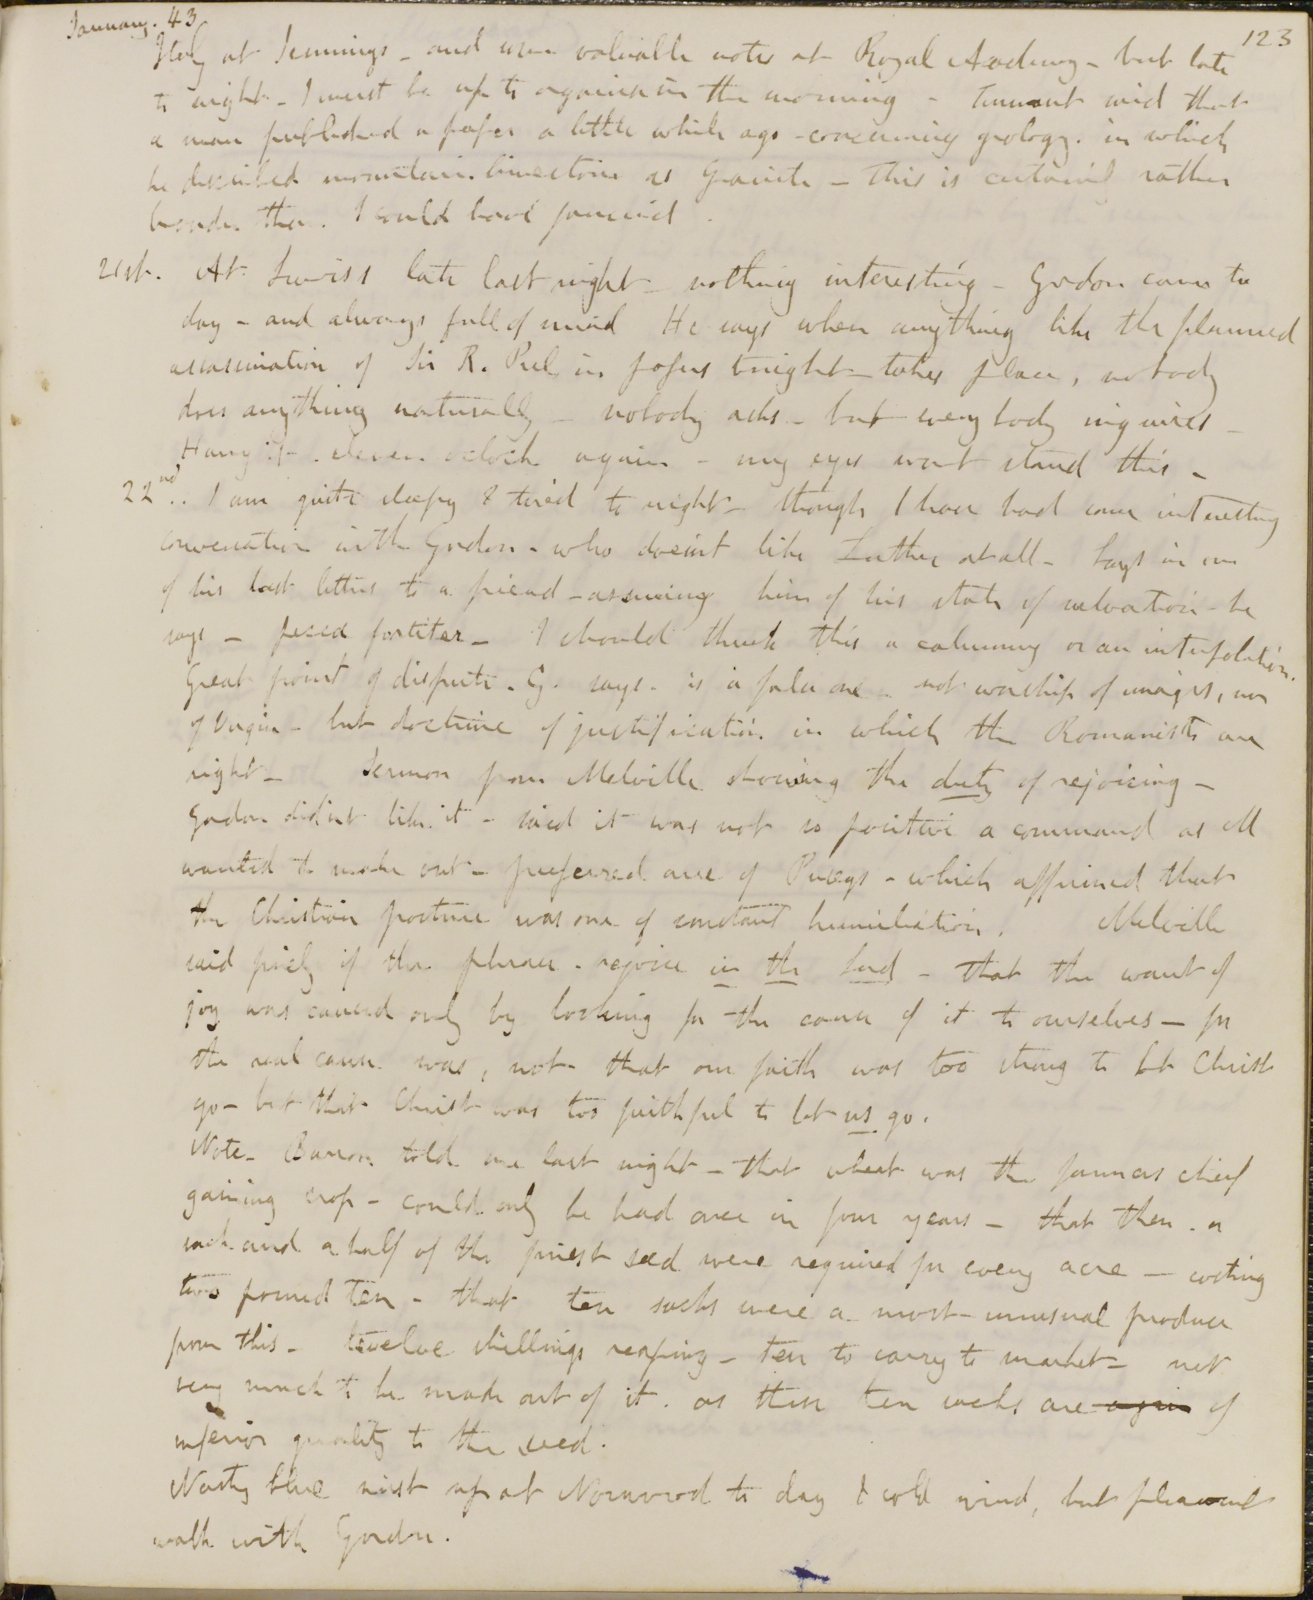 January. 43
123
Italy at Jennings - and some valuable notes at Royal Academy - but late
to night - I must be up to organise in the morning - Tennant said that
a man published a paper a little while ago - concerning geology. in which
he described mountain limestone as Granite - this is certainly rather
broader than I could have fancied.
21st. At Lewis's late last night - nothing interesting - Gordon came to
day - and always full of mind He says when anything like the planned
assassination of Sir R. Peel in fosses tonight takes place, nobody
does anything naturally - nobody acts - but everybody inquires -
Hang it. eleven oclock again - my eyes wont stand this -
22nd. I am quite sleepy & tired to night - though I have had some interesting
conversation with Gordon - who doesn't like Luther at all - Says in one
of his last letters to a friend - assuring him of his state of salvation - he
says - pecca fortiter - I should think this a calumny or an interpolation.
Great point of dispute. G. says. is a false one - not worship of images, nor
of Virgin - but doctrine of justification in which the Romanists are
right - Sermon from Melville showing the duty of rejoicing -
Gordon didn't like it - said it was not so positive a command as M
wanted to make out - preferred one of Puseys - which affirmed that
the Christian posture was one of constant humiliation. Melville
said finely of the phrase - rejoice in the Lord - that the want of
joy was caused only by looking for the cause of it to ourselves - for
the real cause was, not that our faith was too strong to let Christ
go - but that Christ was too faithful to let us go.
Note - Burrow told me last night - that wheat was the farmers chief
gaining crop - could only be had once in four years - that then a
sack and a half of the finest seed were required for every acre - costing
two pound ten - that ten sacks were a most unusual produce
from this - twelve shillings reaping - ten to carry to market - not
very much to be made out of it. as these ten sacks are again of
inferior quality to the seed.
Nasty blue mist up at Norwood to day & cold wind, but pleasant
walk with Gordon.